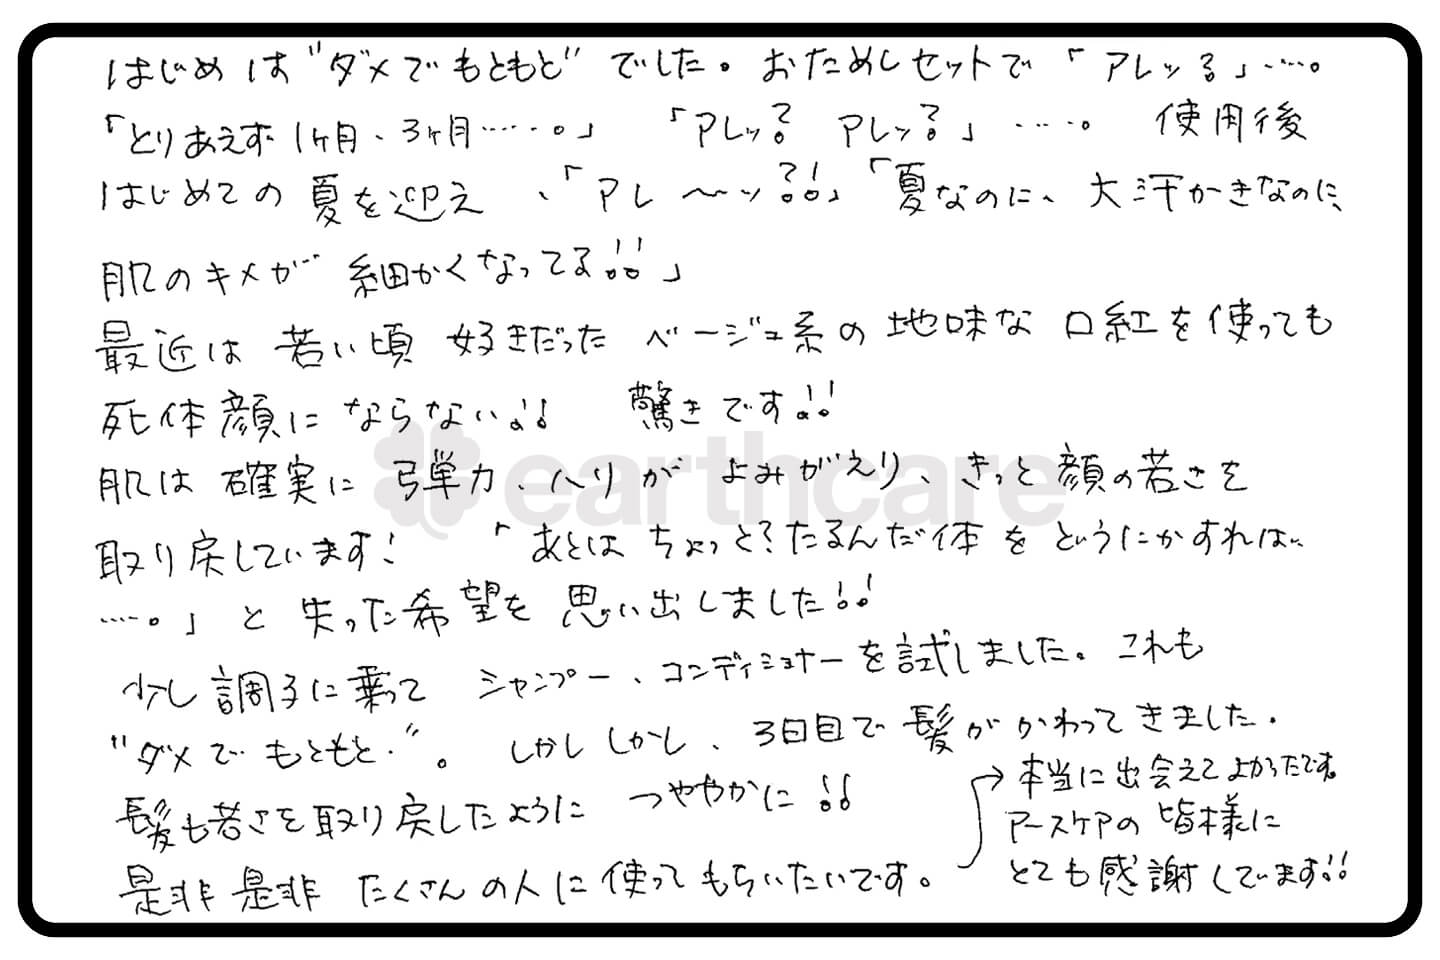 はじめは"ダメでもともと"でした。おためしセットで「アレッ?」……。
「とりあえず1ヶ月、3ヶ月……。」「アレッ? アレッ?」……。使用後
はじめての夏を迎え、「アレ〜ッ?!」「夏なのに、大汗かきなのに、
肌のキメが細かくなってる!!」
最近は若い頃好きだったベージュ系の地味な口紅を使っても
死体顔にならない!! 驚きです!!
earthcare
肌は確実に弾力、ハリがよみがえり、きっと顔の若さを
取り戻しています! 「あとはちょっと?たるんだ体をどうにかすれば…
……。」と失った希望を思い出しました!!
少し調子に乗ってシャンプー、コンディショナーを試しました。これも
"ダメでもともと。"。しかししかし、3日目で髪がかわってきました。
髪も若さを取り戻したようにつややかに!!
是非是非たくさんの人に使ってもらいたいです。
→本当に出会えてよかったです。
アースケアの皆様に
とても感謝しています!!